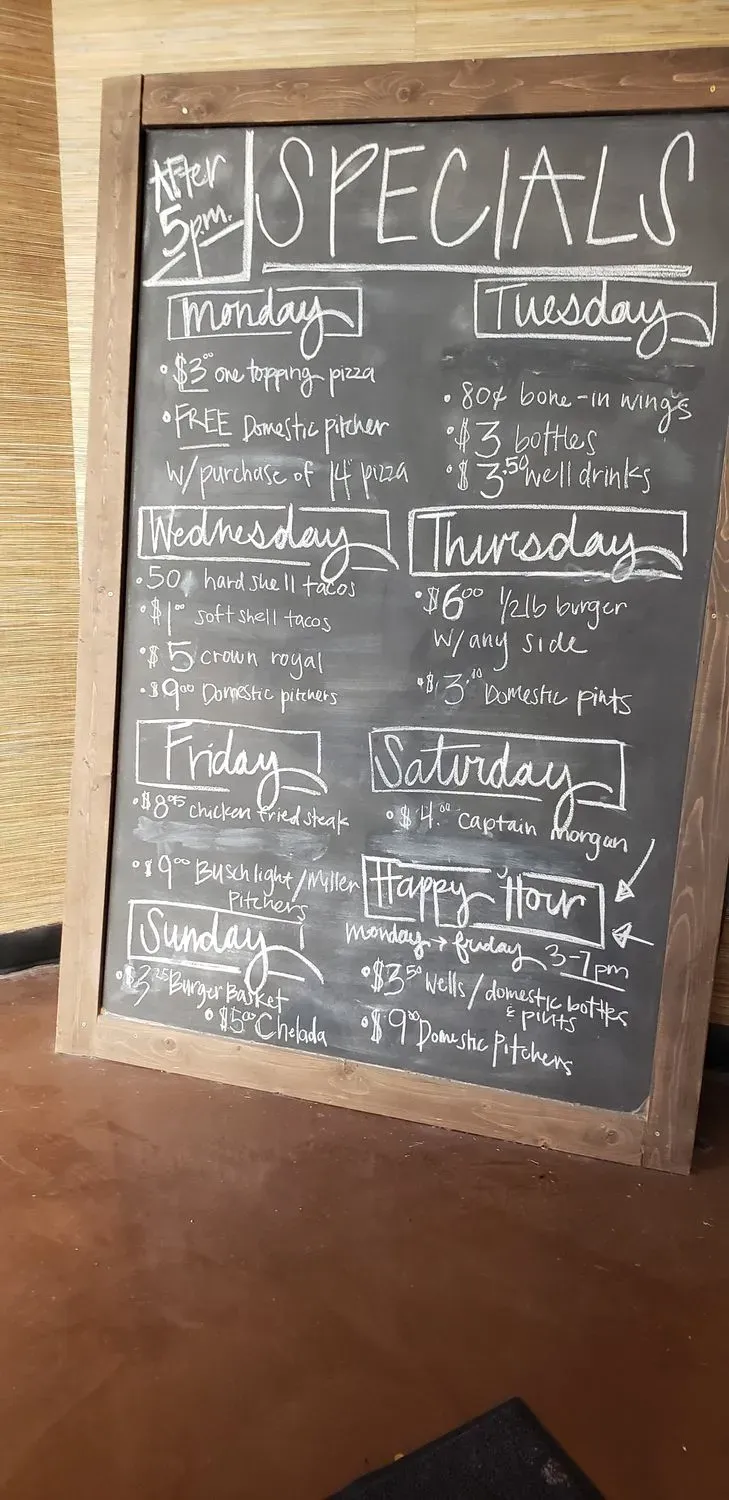 After
5pm.
SPECIALS
Monday
• $3.00 one topping pizza
• FREE Domestic pitcher
w/purchase of 14" pizza
Tuesday
• 80¢ bone-in wings
• $3 bottles
• $3.50 well drinks
Wednesday
• 50¢ hard shell tacos
• $1.00 soft shell tacos
• $5 crown royal
• $9.00 Domestic pitchers
Thursday
• $6.00 1/2lb burger
w/any side
• $3. Domestic pints
Friday
• $8.95 chicken fried steak
• $9.00 Busch light/Miller
Pitchers
Saturday
• $4.00 captain morgan
Happy Hour
monday → friday 3-7pm
• $3.50 Wells/domestic bottles
& pints
• $9.00 Domestic Pitchers
Sunday
• $3.25 Burger Basket
• $5.00 Chelada